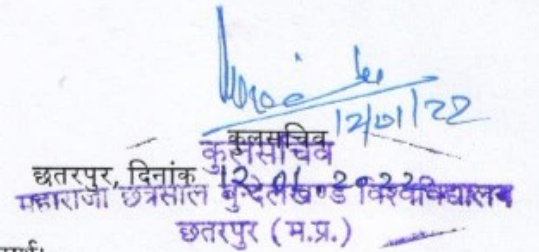 12/01/22
कुलसचिव
कुलसचिव
छतरपुर, दिनांक 12.01.2022
महाराजा छत्रसाल बुन्देलखण्ड विश्वविद्यालय
छतरपुर (म.प्र.)